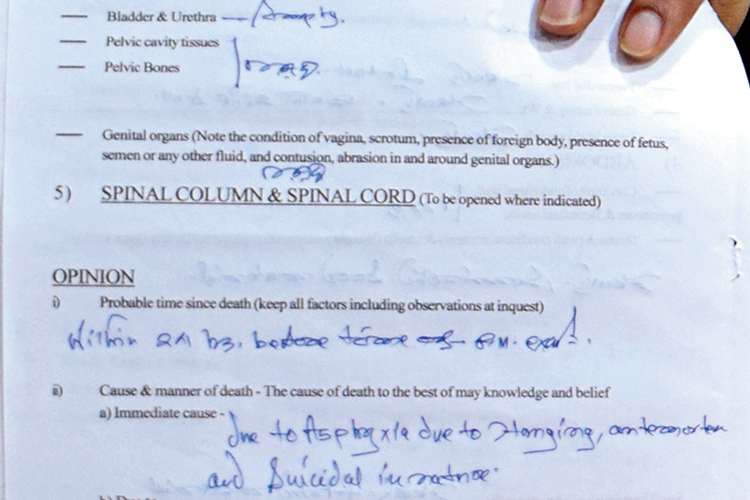 — Bladder & Urethra — Empty.
— Pelvic cavity tissues
— Pelvic Bones
— Genital organs (Note the condition of vagina, scrotum, presence of foreign body, presence of fetus,
semen or any other fluid, and contusion, abrasion in and around genital organs.)
5) SPINAL COLUMN & SPINAL CORD (To be opened where indicated)
OPINION
i) Probable time since death (keep all factors including observations at inquest)
Within 24 hs. before time of P.M. exam.
ii) Cause & manner of death - The cause of death to the best of may knowledge and belief
a) Immediate cause -
due to Asphyxia due to Hanging, antemortem
and Suicidal in nature.